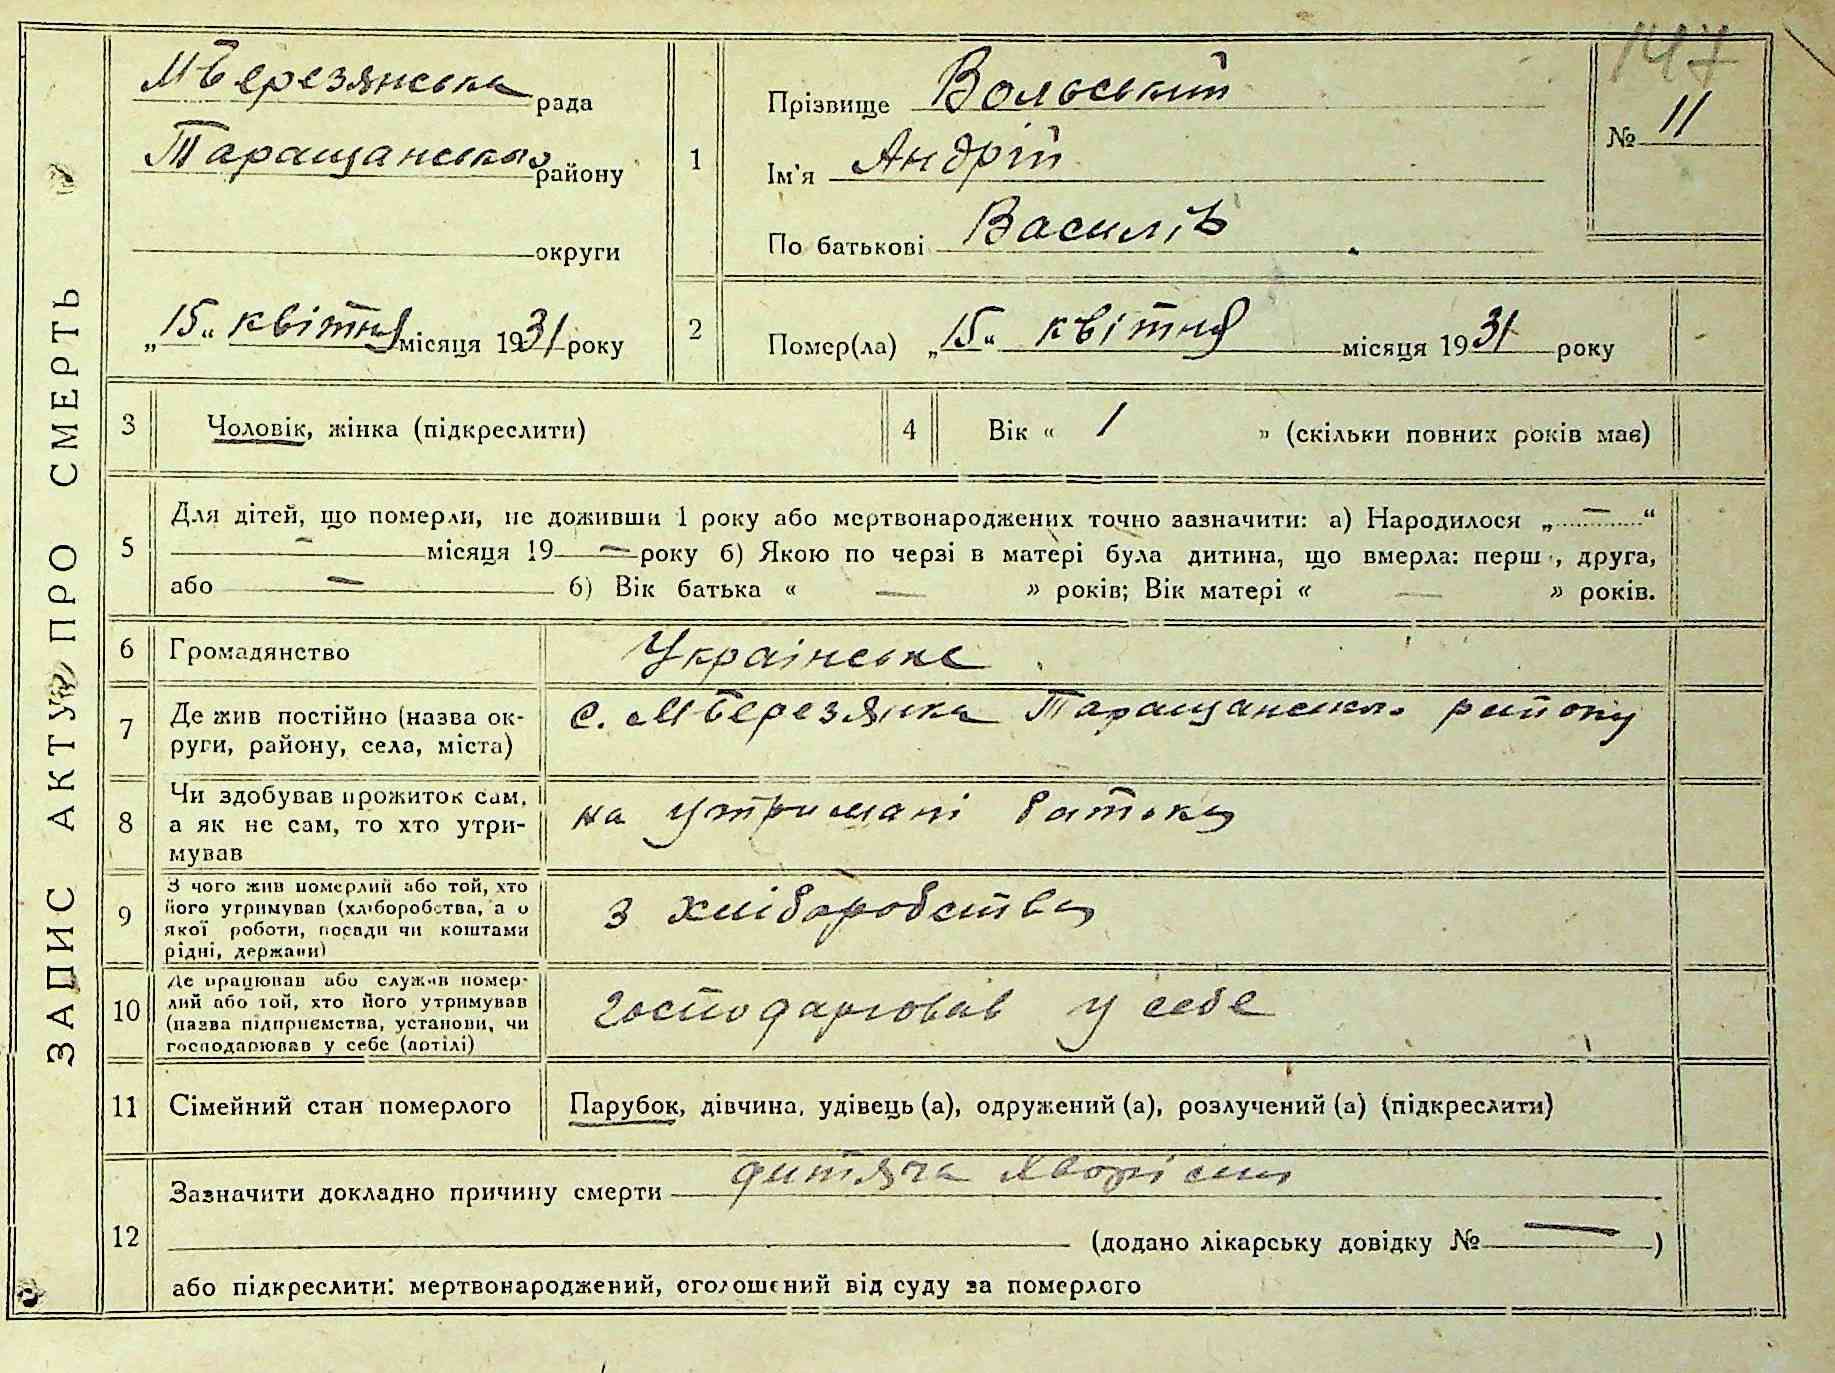 147
ЗАПИС АКТУ ПРО СМЕРТЬ
МБерезянська рада
Таращансько району
округи
„15“ квітня місяця 1931 року
1
Прізвище Вольський
Ім'я Андрій
По батькові Василів
№ 11
2
Помер(ла) „15“ квітня місяця 1931 року
3 Чоловік, жінка (підкреслити)
4 Вік « 1 » (скільки повних років має)
5
Для дітей, що померли, не доживши 1 року або мертвонароджених точно зазначити: а) Народилося „ — “
— місяця 19 — року б) Якою по черзі в матері була дитина, що вмерла: перш , друга,
або — б) Вік батька « — » років; Вік матері « — » років.
6 Громадянство Українське
7
Де жив постійно (назва ок-
руги, району, села, міста)
с. МБерезянка Таращансько району
8
Чи здобував прожиток сам,
а як не сам, то хто утри-
мував
на утримані батька
9
З чого жив померлий або той, хто
його утримував (хліборобства, а о
якої роботи, посади чи коштами
рідні, держави)
з хліборобства
10
Де працював або служив помер-
лий або той, хто його утримував
(назва підприємства, установи, чи
господарював у себе (артілі)
господарював у себе
11 Сімейний стан померлого Парубок, дівчина, удівець (а), одружений (а), розлучений (а) (підкреслити)
12
Зазначити докладно причину смерти дитяча
(додано лікарську довідку № — )
або підкреслити: мертвонароджений, оголошений від суду за померлого